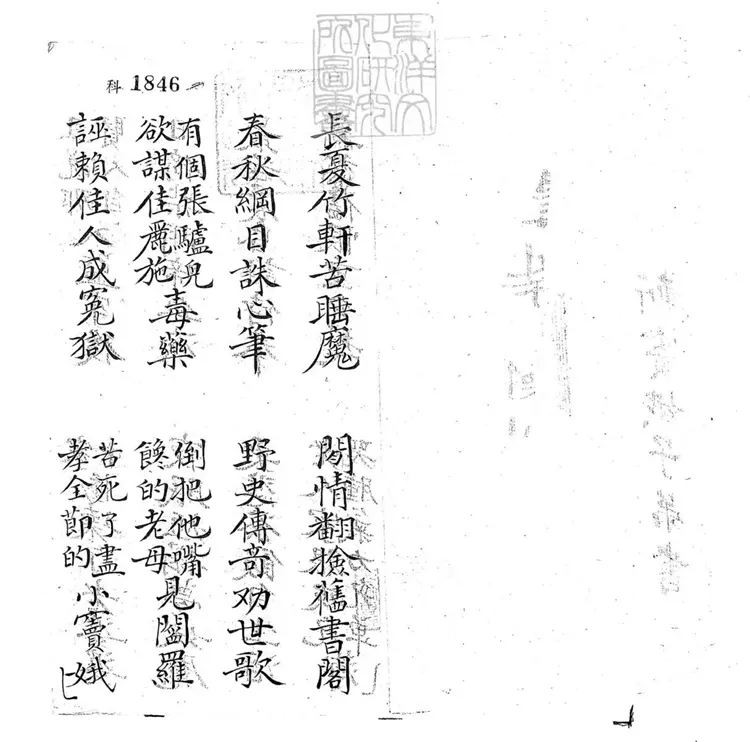 東洋文
化研究
所圖書
科 1846
長夏竹軒苦睡魔 閒情翻撿舊書閣
春秋綱目誅心筆 野史傳奇劝世歌
有個張驢兒
欲謀佳麗施毒藥
倒把他嘴
饞的老母見閻羅
誣賴佳人成冤獄
苦死了盡
孝全節的小竇娥